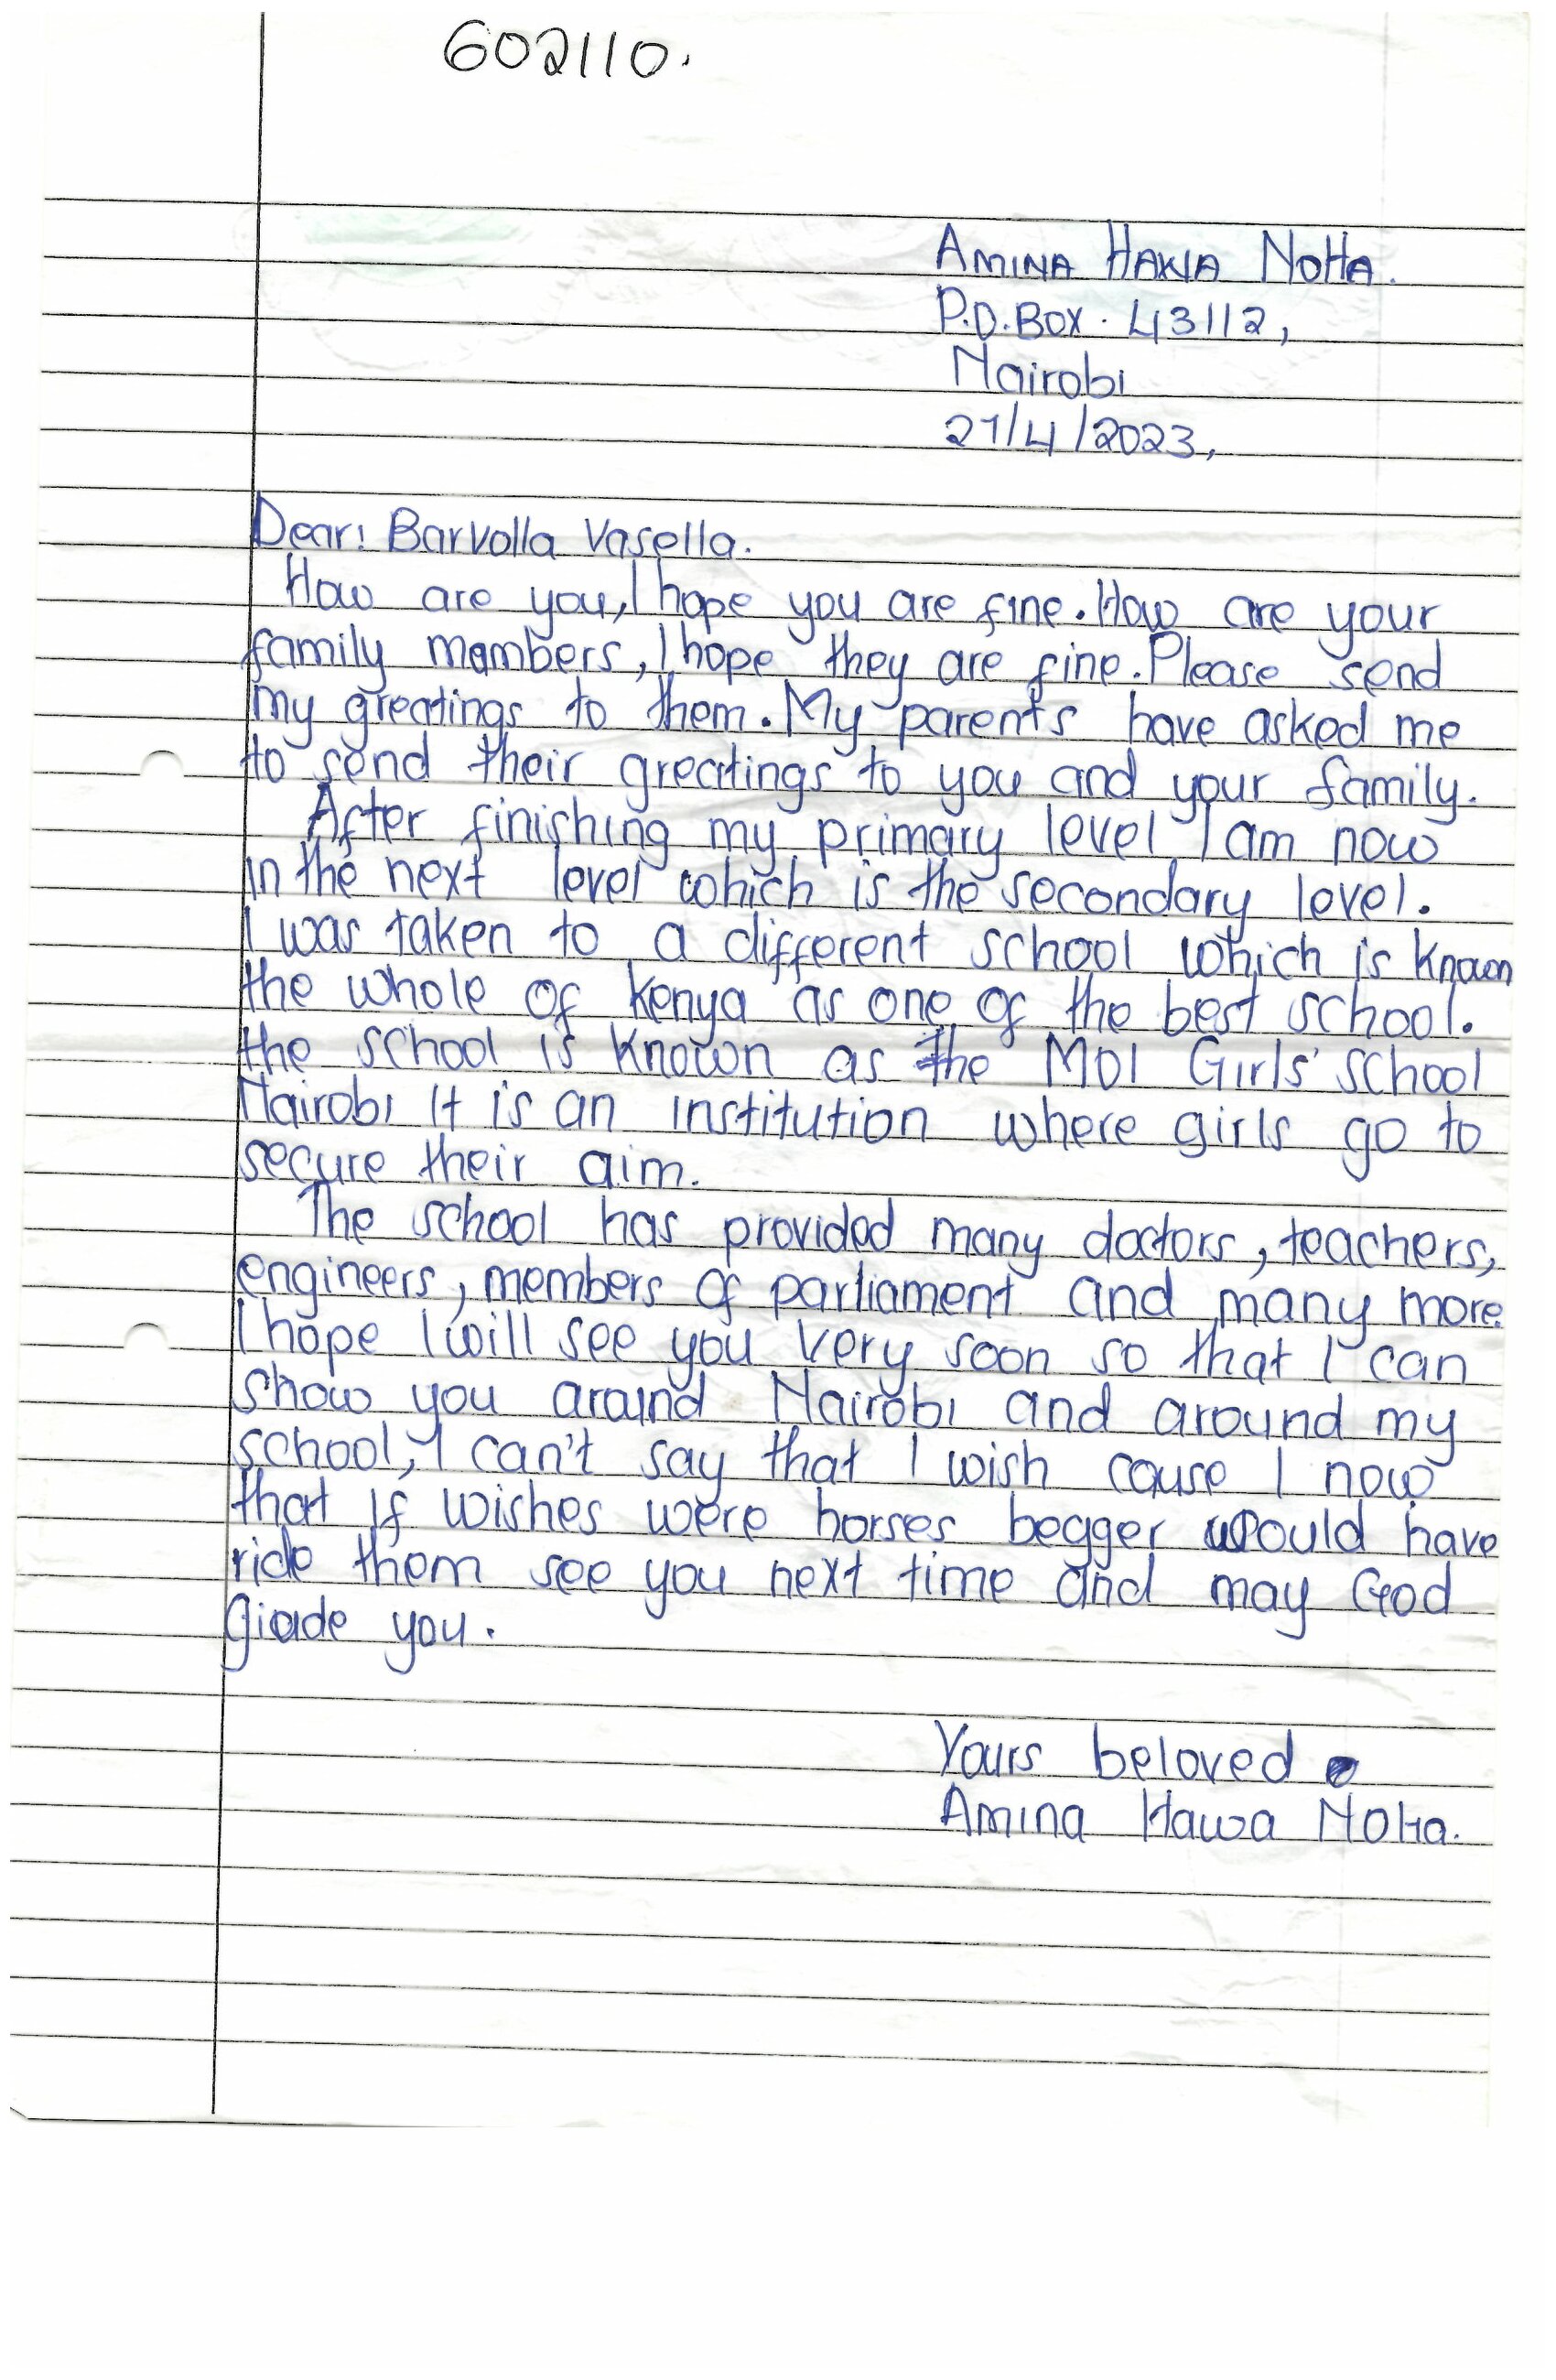 602110.
AMINA HAWA NOHA.
P.O.BOX. 43112,
Nairobi
21/4/2023,
Dear! Barvolla Vasella.
How are you, I hope you are fine. How are your
family members, I hope they are fine. Please send
my greatings to them. My parents have asked me
to send their greatings to you and your family.
After finishing my primary level I am now
in the next level which is the secondary level.
I was taken to a different school which is known
the whole of kenya as one of the best school.
the school is known as the MOI Girls' school
Nairobi It is an institution where girls go to
secure their aim.
The school has provided many doctors, teachers,
engineers, members of parliament and many more.
I hope I will see you very soon so that I can
show you around Nairobi and around my
school, I can't say that I wish cause I now
that if wishes were horses begger would have
ride them see you next time and may God
giade you.
Yours beloved
Amina Hawa NOHa.